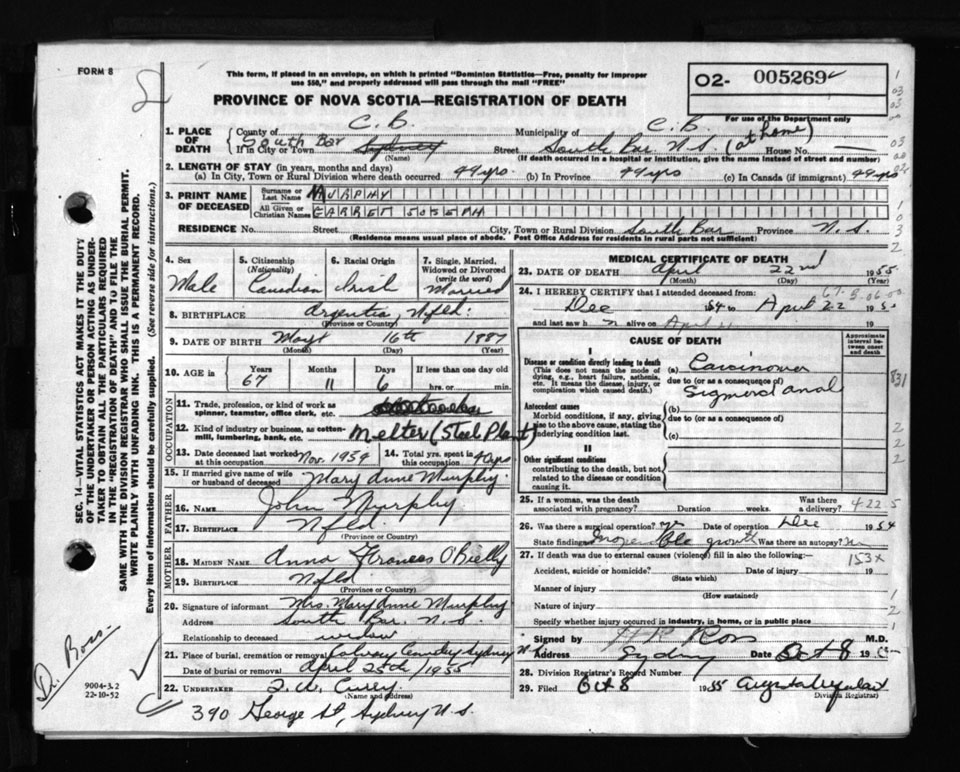 FORM 8
This form, if placed in an envelope, on which is printed "Dominion Statistics—Free, penalty for improper
use $50," and properly addressed will pass through the mail "FREE"
PROVINCE OF NOVA SCOTIA—REGISTRATION OF DEATH
02- 005269
For use of the Department only
1. PLACE OF DEATH { County of C. B. Municipality of C. B.
South Bar
If in City or Town Sydney (Name) Street South Bar. N.S. (at home) House No. —
(If death occurred in a hospital or institution, give the name instead of street and number)
2. LENGTH OF STAY (in years, months and days)
(a) In City, Town or Rural Division where death occurred. 49 yrs. (b) In Province 49 yrs (c) In Canada (if immigrant) 49 yrs
3. PRINT NAME OF DECEASED { Surname or Last Name MURPHY
All Given or Christian Names GARRET JOSEPH
RESIDENCE No. Street City, Town or Rural Division South Bar Province N. S.
(Residence means usual place of abode. Post Office Address for residents in rural parts not sufficient)
4. Sex Male
5. Citizenship (Nationality) Canadian
6. Racial Origin Irish
7. Single, Married, Widowed or Divorced (write the word) Married
8. BIRTHPLACE Argentia, Nfld.
(Province or Country)
9. DATE OF BIRTH 16th 1887
(Month) (Day) (Year)
10. AGE in Years 67 Months 11 Days 6 If less than one day old hrs. or min.
OCCUPATION
11. Trade, profession, or kind of work as spinner, teamster, office clerk, etc.
12. Kind of industry or business, as cotten-mill, lumbering, bank, etc. Melter (Steel Plant)
13. Date deceased last worked at this occupation Nov. 1939 14. Total yrs. spent in this occupation 40 yrs
15. If married give name of wife or husband of deceased Mary Anne Murphy
FATHER
16. Name John Murphy
17. BIRTHPLACE Nfld.
(Province or Country)
MOTHER
18. MAIDEN NAME Anna Frances O'Rielly
19. BIRTHPLACE Nfld.
(Province or Country)
20. Signature of informant Mrs. Mary Anne Murphy
Address South Bar. N. S.
Relationship to deceased widow
21. Place of burial, cremation or removal Calvary Cemetery Sydney N.S.
Date of burial or removal April 25th / 1955
22. UNDERTAKER
(Name and address)
390 George St, Sydney N.S.
MEDICAL CERTIFICATE OF DEATH
23. DATE OF DEATH April 22nd 1955
(Month) (Day)
24. I HEREBY CERTIFY that I attended deceased from:
Dec 54 to April 22 19
and last saw h alive on April 19
CAUSE OF DEATH
Approximate interval between onset and death
I
Disease or condition directly leading to death
(This does not mean the mode of dying, e.g., heart failure, asthma, etc. It means the disease, injury, or complication which caused death.)
(a) Carcinoma
due to (or as a consequence of)
Sigmoid anal
Antecedent causes
Morbid conditions, if any, giving rise to the above cause, stating the underlying condition last.
(b)
due to (or as a consequence of)
(c)
II
Other significant conditions
contributing to the death, but not related to the disease or condition causing it.
831
25. If a woman, was the death associated with pregnancy? Duration weeks. Was there a delivery? 422.5
26. Was there a surgical operation? Date of operation Dec 1954
State findings Inoperable growth Was there an autopsy?
27. If death was due to external causes (violence) fill in also the following:— 153x
Accident, suicide or homicide? Date of injury 19
(State which)
Manner of injury
(How sustained)
Nature of injury
Specify whether injury occurred in industry, in home, or in public place
Signed by H R Ross M.D.
Address Sydney Date Oct 8 19
28. Division Registrar's Record Number
29. Filed Oct 8 1955
Division Registrar)
SEC. 14—VITAL STATISTICS ACT MAKES IT THE DUTY
OF THE UNDERTAKER OR PERSON ACTING AS UNDER-
TAKER TO OBTAIN ALL THE PARTICULARS REQUIRED
IN THE "REGISTRATION OF DEATH" AND TO FILE THE
SAME WITH THE DIVISION REGISTRAR WHO SHALL ISSUE THE BURIAL PERMIT.
WRITE PLAINLY WITH UNFADING INK. THIS IS A PERMANENT RECORD.
Every item of information should be carefully supplied. (See reverse side for instructions.)
Dr. Ross.
9004-3.2
22-10-52